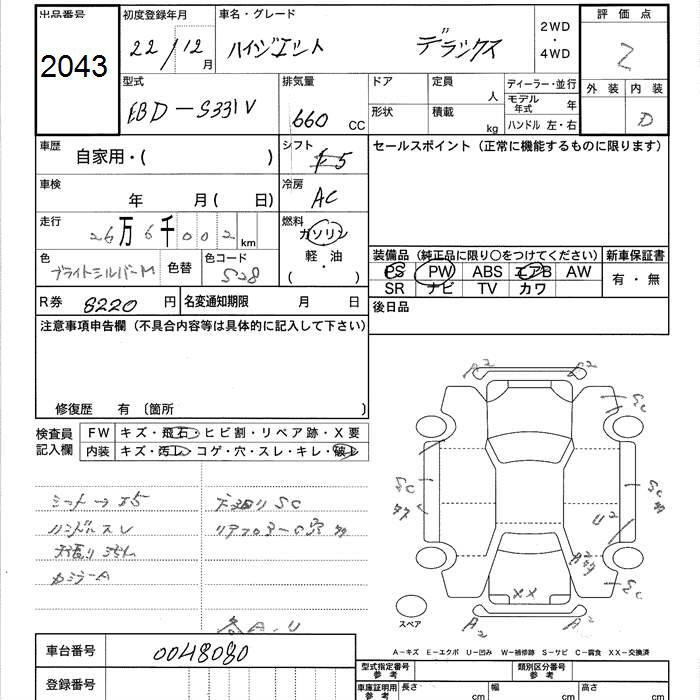 出品番号
2043
初度登録年月
22/12月
車名・グレード
ハイゼット デラックス
2WD
・
4WD
評価点
2
外装 内装
D
型式
EBD-S331V
排気量
660 CC
ドア
定員 人
形状
積載 kg
ディーラー・並行
モデル年式 年
ハンドル 左・右
車歴
自家用・( )
シフト
F5
セールスポイント(正常に機能するものに限ります)
車検
年 月( 日)
冷房
AC
走行
26万6千002km
燃料
ガソリン
軽・油
( ・ )
色
ブライトシルバーM
色替
色コード
S28
装備品(純正品に限り○をつけてください)
PS PW ABS エアB AW
SR ナビ TV カワ
新車保証書
有・無
R券 8220 円
名変通知期限 月 日
後日品
注意事項申告欄(不具合内容等は具体的に記入して下さい)
修復歴 有〔箇所 〕
検査員記入欄
FW キズ・飛石・ヒビ割・リペア跡・X要
内装 キズ・汚れ・コゲ・穴・スレ・キレ・破レ
ハンドルスレ
各A.U
A2
S2
SC
SC
SC
U2
A2
SC
XX
A2
A2
スペア
A-キズ E-エクボ U-凹み W-補修跡 S-サビ C-腐食 XX-交換済
車台番号 0048080
登録番号
型式指定番号 参考
類別区分番号 参考
車庫証明用 参考
長さ cm
幅 cm
高さ cm